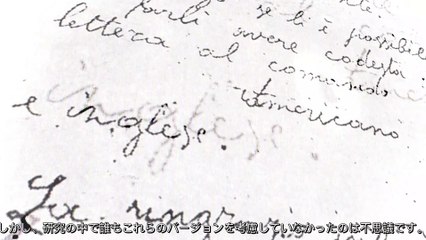 se li è possibile
farli avere codesta
lettera al comando
Americano
e inglese.
La
しかし、研究の中で誰もこれらのバージョンを考慮していなかったのは不思議です。